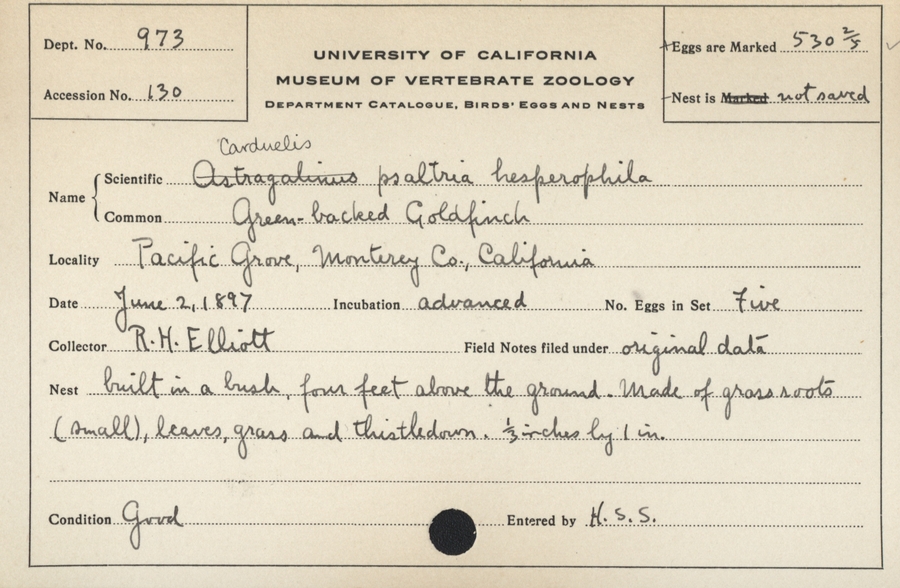 Dept. No. 973
Accession No. 130
UNIVERSITY OF CALIFORNIA
MUSEUM OF VERTEBRATE ZOOLOGY
DEPARTMENT CATALOGUE, BIRDS' EGGS AND NESTS
Eggs are Marked 530 2/5
Nest is Marked not saved
Carduelis
Name
Scientific Astragalinus psaltria hesperophila
Common Green-backed Goldfinch
Locality Pacific Grove, Monterey Co., California
Date June 2, 1897 Incubation advanced No. Eggs in Set Five
Collector R. H. Elliott Field Notes filed under original data
Nest built in a bush, four feet above the ground. Made of grass roots
(small), leaves, grass and thistledown. ⅓ inches by 1 in.
Condition Good Entered by H. S. S.